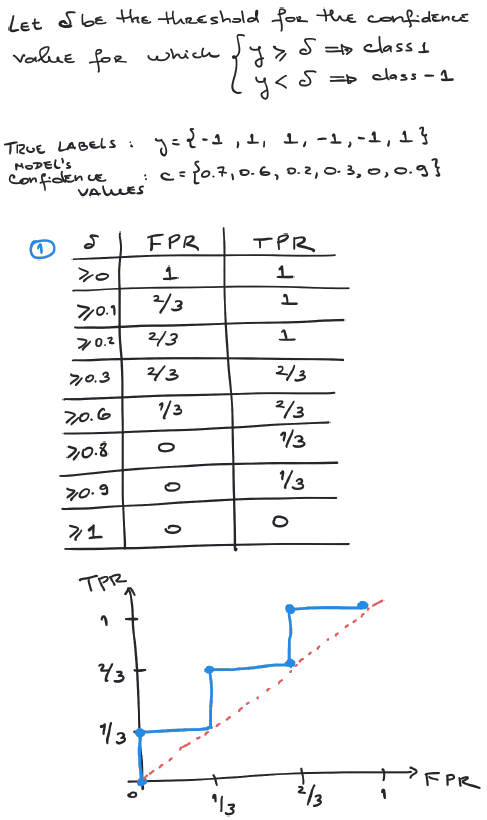 Let δ be the threshold for the confidence
value for which { y ⩾ δ ⇒ class 1
y < δ ⇒ class -1
TRUE LABELS : y = {-1, 1, 1, -1, -1, 1}
MODEL'S
Confidence : c = {0.7, 0.6, 0.2, 0.3, 0, 0.9}
VALUES
① δ FPR TPR
⩾0 1 1
⩾0.1 2/3 1
⩾0.2 2/3 1
⩾0.3 2/3 2/3
⩾0.6 1/3 2/3
⩾0.8 0 1/3
⩾0.9 0 1/3
⩾1 0 0
TPR
1
2/3
1/3
0 1/3 2/3 1 FPR